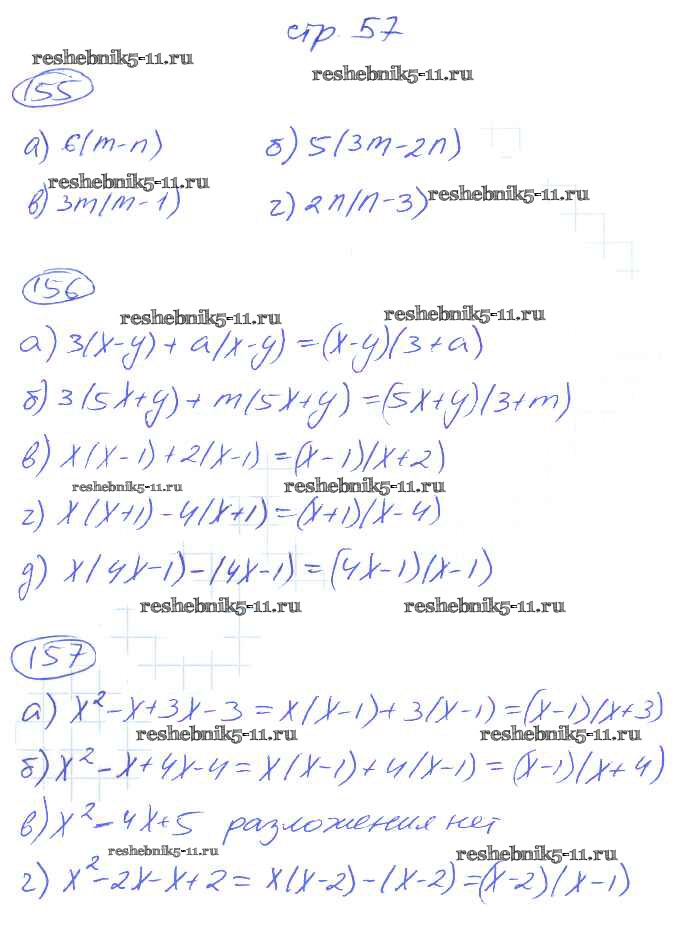 стр. 57
reshebnik5-11.ru
reshebnik5-11.ru
155
а) 6(m-n) б) 5(3m-2n)
reshebnik5-11.ru
reshebnik5-11.ru
в) 3m(m-1) г) 2n(n-3)
156
reshebnik5-11.ru
reshebnik5-11.ru
а) 3(x-y)+a(x-y)=(x-y)(3+a)
б) 3(5x+y)+m(5x+y)=(5x+y)(3+m)
в) x(x-1)+2(x-1)=(x-1)(x+2)
reshebnik5-11.ru
reshebnik5-11.ru
г) x(x+1)-4(x+1)=(x+1)(x-4)
д) x(4x-1)-(4x-1)=(4x-1)(x-1)
reshebnik5-11.ru
reshebnik5-11.ru
157
а) x²-x+3x-3=x(x-1)+3(x-1)=(x-1)(x+3)
reshebnik5-11.ru
reshebnik5-11.ru
б) x²-x+4x-4=x(x-1)+4(x-1)=(x-1)(x+4)
в) x²-4x+5 разложения нет
reshebnik5-11.ru
reshebnik5-11.ru
г) x²-2x-x+2=x(x-2)-(x-2)=(x-2)(x-1)